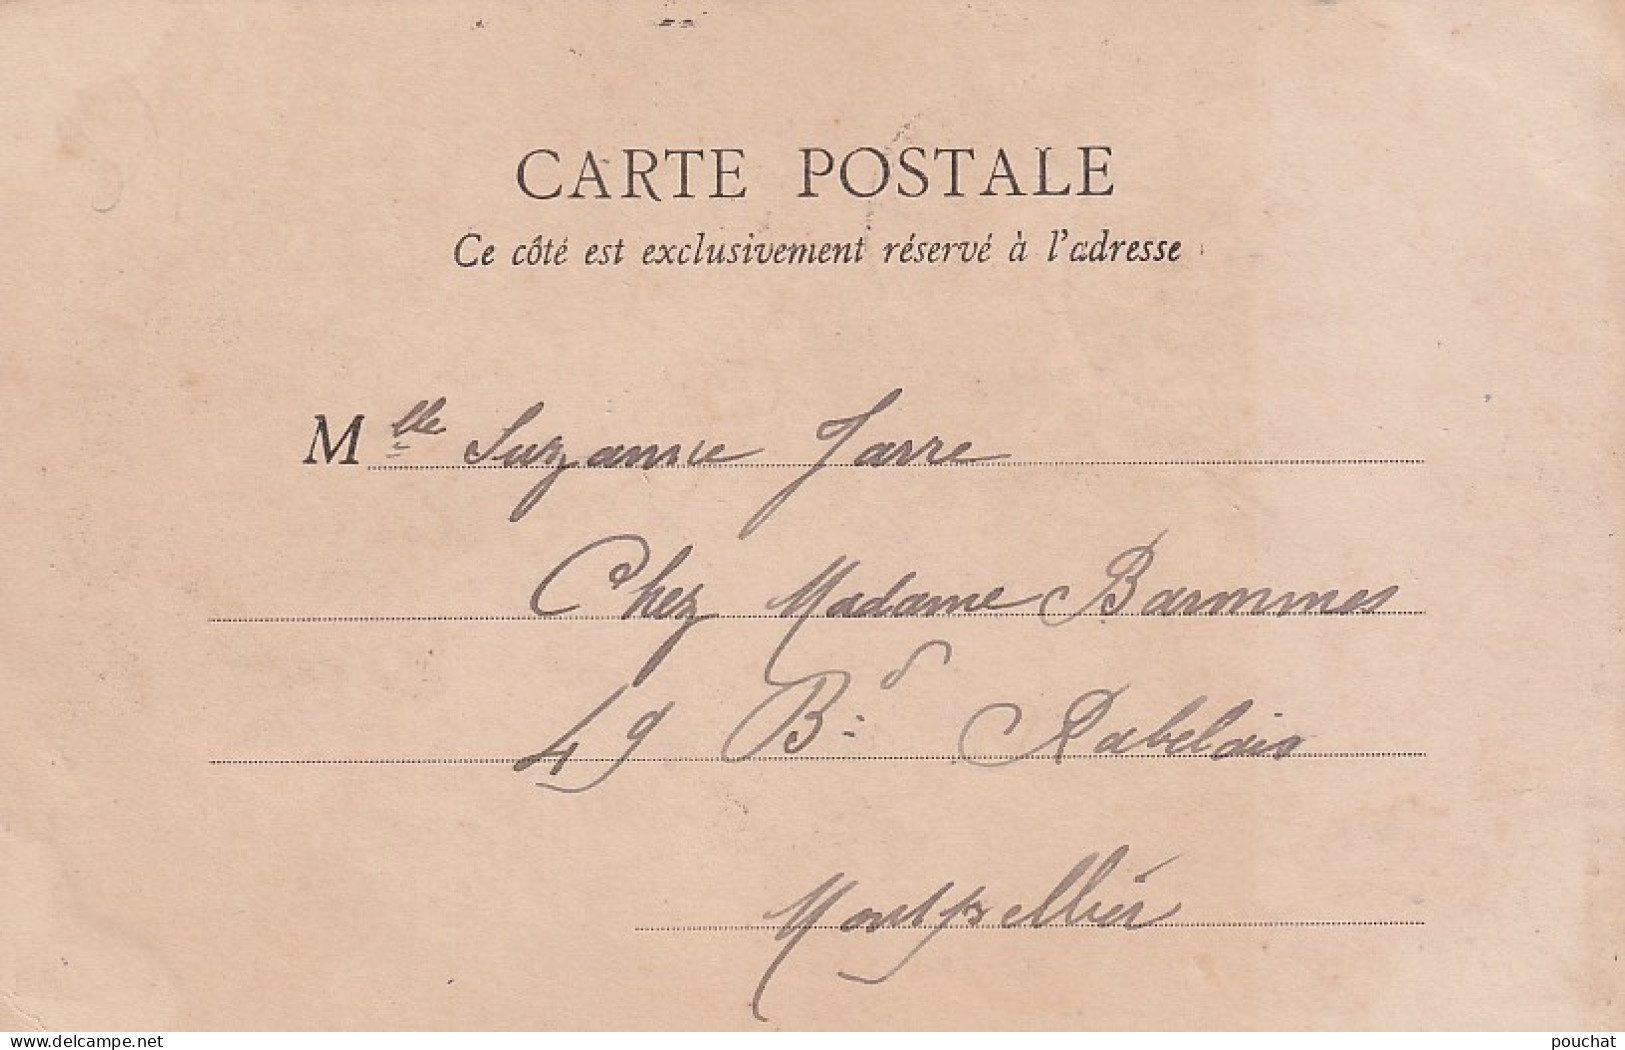 CARTE POSTALE
Ce côté est exclusivement réservé à l'adresse
Mlle Suzanne Jarre
Chez Madame Barommes
49 Bd Rabelais
Montpellier
www.delcampe.net
pouchat